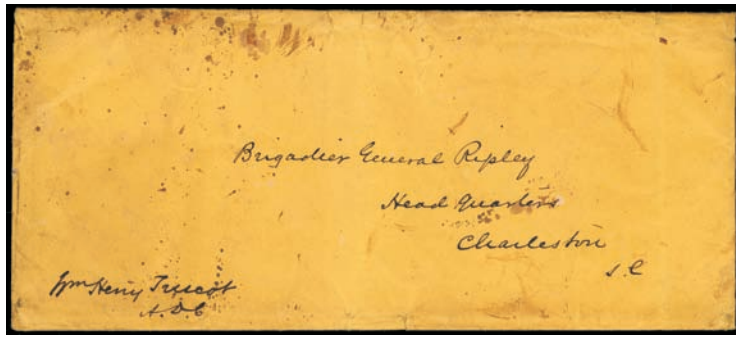 Brigadier General Ripley
Head Quarters
Charleston
S. C
Wm Henry Trescot
A. D. C